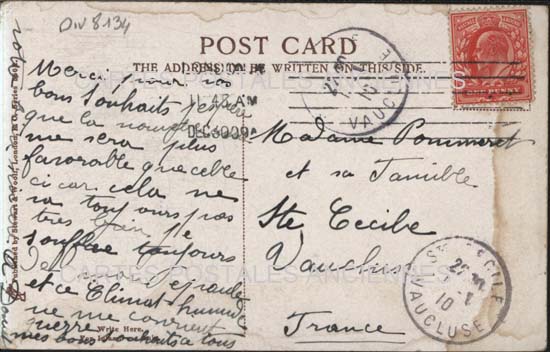 Div 8134
POST CARD
THE ADDRESS TO BE WRITTEN ON THIS SIDE.
Merci pour vos
bons souhaits j'espère
que la nouvelle
me sera plus
favorable que celle
ci car cela ne
va toujours pas
très bien je
souffre toujours
et ce Climat humide
ne me convient
guerre
mes bons souhaits a tous
Write Here.
12 AM
DEC 30 09
ONE PENNY
VAUCLUSE
Madame Pommeret
et sa Famille
Ste Cecile
Vaucluse
France
STE CECILE
10
VAUCLUSE
CARTES POSTALES ANCIENNES
CARTES POSTALES ANCIENNES